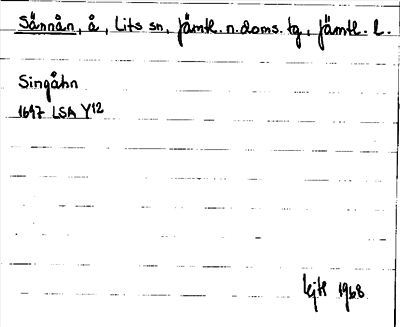 Sännån, å, Lits sn, Jämtl. n. doms. tg, Jämtl. l.
Singåhn
1697 LSA Y12
1968